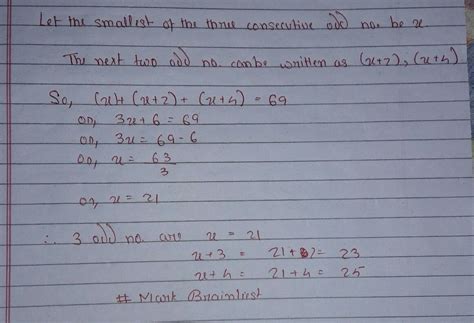 Let the smallest of the three consecutive odd no. be x
The next two odd no. can be written as (x+2), (x+4)
So, (x)+ (x+2) + (x+4) = 69
or, 3x + 6 = 69
or, 3x = 69 - 6
or, x = 63/3
or, x = 21
∴ 3 odd no. are x = 21
x+3 = 21+ )= 23
x+4 = 21+4 = 25
# Mark Brainliest